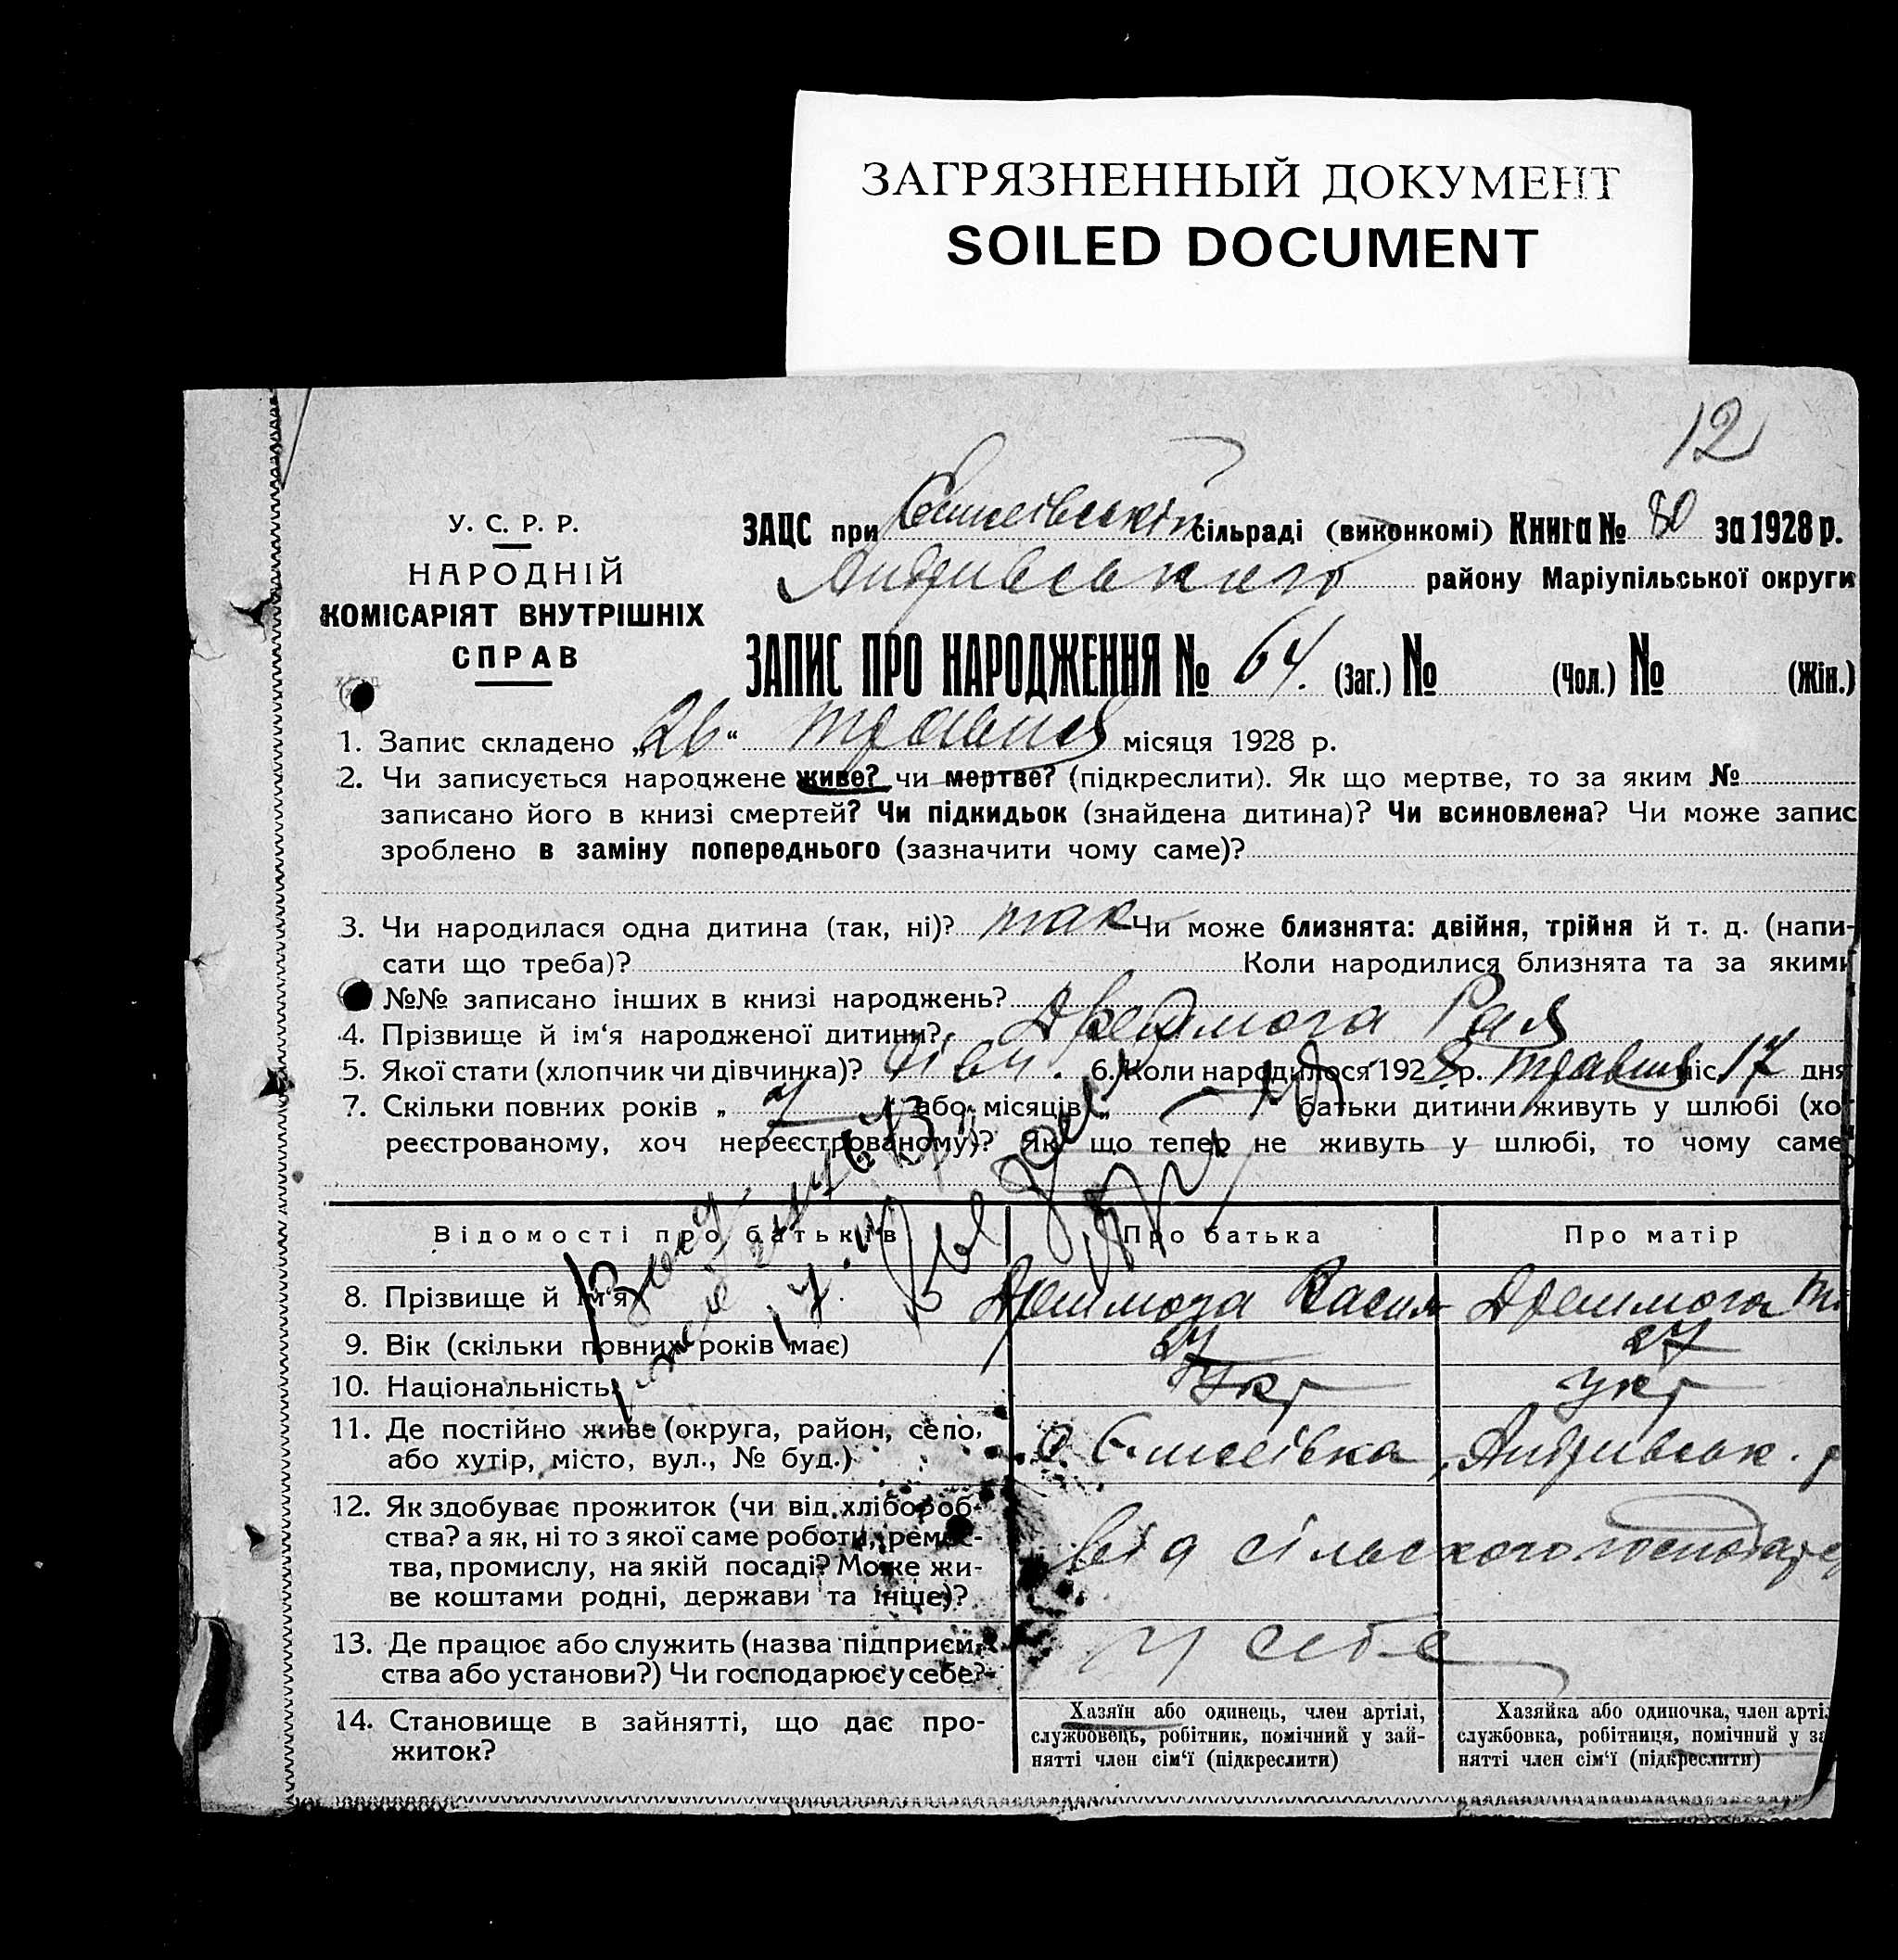 ЗАГРЯЗНЕННЫЙ ДОКУМЕНТ
SOILED DOCUMENT
12
У. С. Р. Р.
НАРОДНІЙ
КОМІСАРІЯТ ВНУТРІШНІХ
СПРАВ
ЗАЦС при Єлисеївській сільраді (виконкомі) Книга № 80 за 1928 р.
Андріівського району Маріупільської округи
ЗАПИС ПРО НАРОДЖЕННЯ № 64. (Заг.) № (Чол.) № (Жін.)
1. Запис складено „26“ травня місяця 1928 р.
2. Чи записується народжене живе? чи мертве? (підкреслити). Як що мертве, то за яким №
записано його в книзі смертей? Чи підкидьок (знайдена дитина)? Чи всиновлена? Чи може запис
зроблено в заміну попереднього (зазначити чому саме)?
3. Чи народилася одна дитина (так, ні)? так Чи може близнята: двійня, трійня й т. д. (напи-
сати що треба)? Коли народилися близнята та за якими
№№ записано інших в книзі народжень?
4. Прізвище й ім‘я народженої дитини? Дрешмога Рая
5. Якої стати (хлопчик чи дівчинка)? дівч. 6. Коли народилося 1928 р. травня міс. 17 дня
7. Скільки повних років „ 7 “ або місяців „ батьки дитини живуть у шлюбі (хоч
реєстрованому, хоч нереєстрованому)? Як що тепер не живуть у шлюбі, то чому саме
Відомості про батьків Про батька Про матір
8. Прізвище й ім‘я Дрешмога Васил Дрешмога
9. Вік (скільки повних років має) 27 27
10. Національність Укр Укр
11. Де постійно живе (округа, район, село,
або хутір, місто, вул., № буд.) с. Єлисеївка, Андрівськ. р
12. Як здобуває прожиток (чи від хлібороб-
ства? а як, ні то з якої саме роботи, ремес-
тва, промислу, на якій посаді? Може жи-
ве коштами родні, держави та інше)?
від сільского господарс
13. Де працює або служить (назва підприєм-
ства або установи?) Чи господарює у себе?
у себе
14. Становище в зайнятті, що дає про-
житок?
Хазяїн або одинець, член артілі,
службовець, робітник, помічний у зай-
нятті член сім‘ї (підкреслити)
Хазяйка або одиночка, член арті
службовка, робітниця, помічний у за
нятті член сім‘ї (підкреслити)